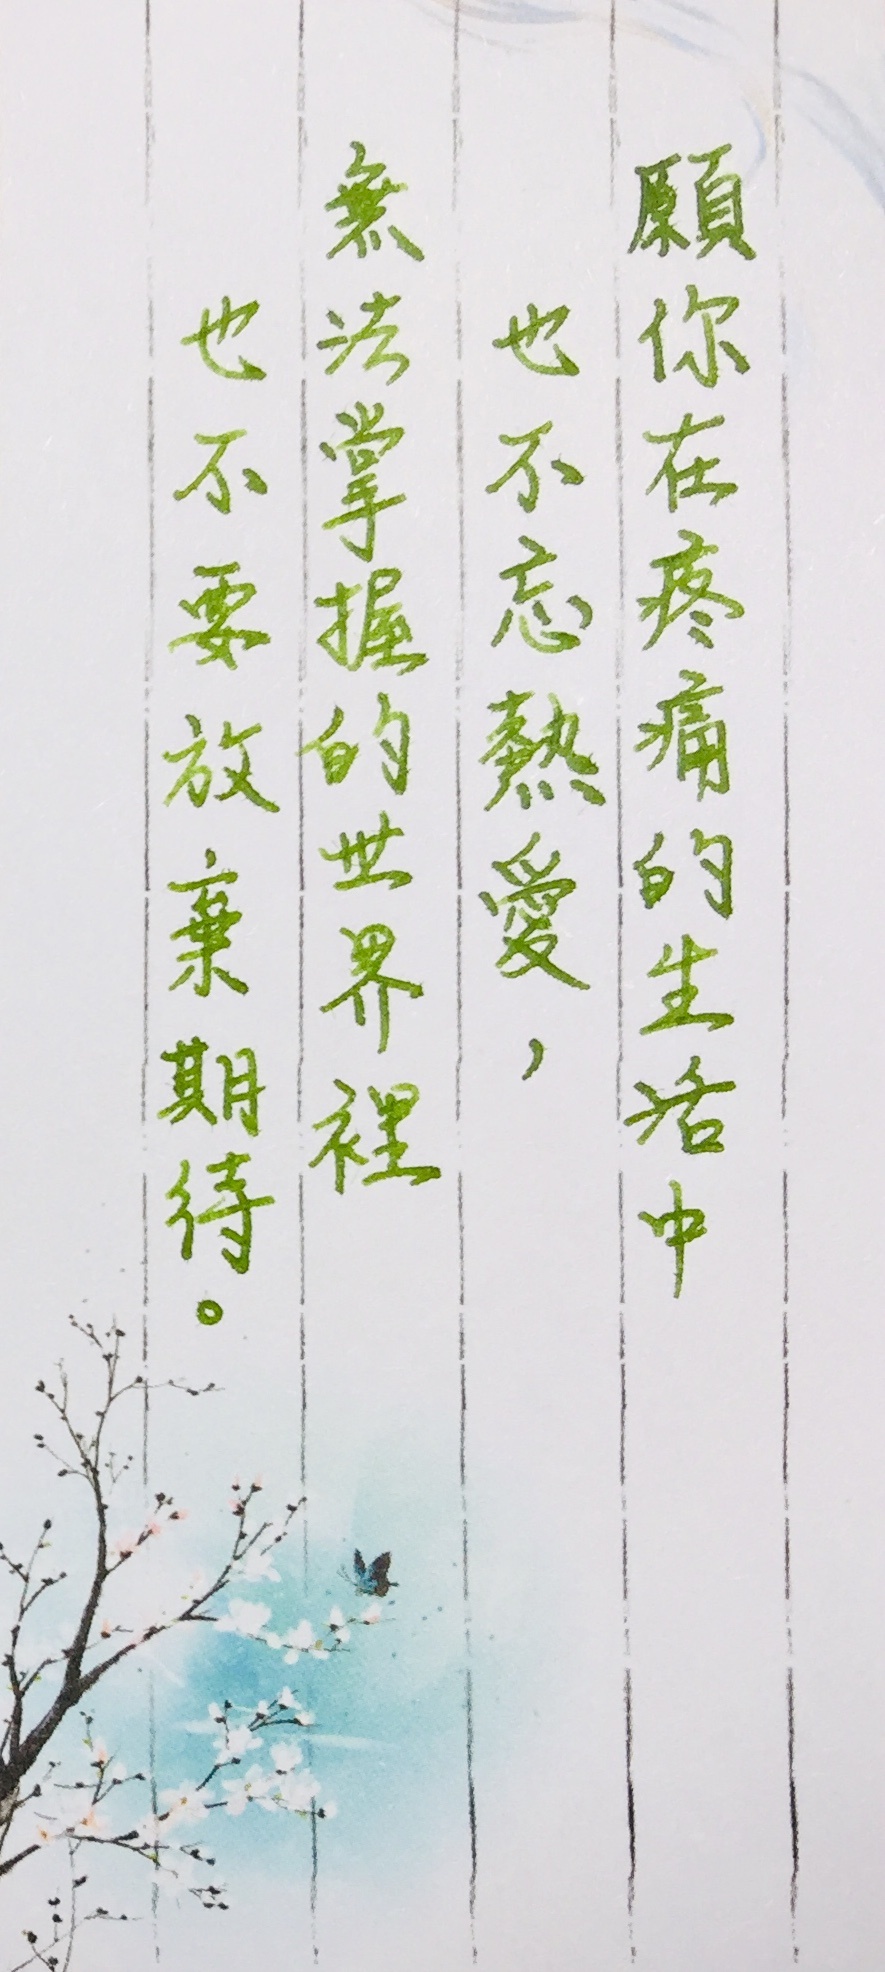 願你在疼痛的生活中
也不忘熱愛，
無法掌握的世界裡
也不要放棄期待。